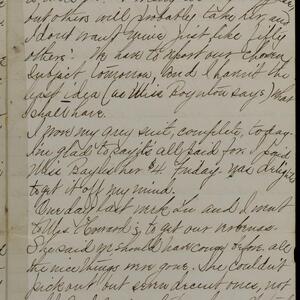 out others will probably take her, and
I don't want mine just like fifty
others'. We have to report our chosen
subject tomorrow, and I haven't the
last idea (as Miss Boynton says) what
I shall have.
I wore my grey suit, complete, today.
I'm glad to say it's all paid for. I paid
Miss Bayles her $4 Friday, was delighted
to get it off my mind.
One day last week Lu and I went
to Mrs. Conrad's, to get our
She said we should have come before, all
the nice things were gone. She couldn't
pick out but seven decent ones, not